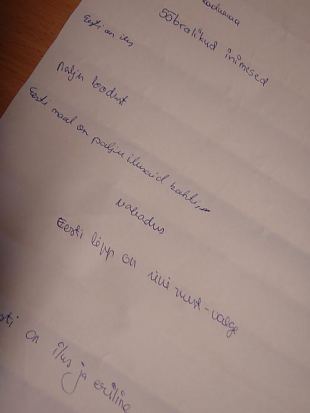 kodumaa
Sõbralikud inimesed
Eesti on ilus
palju loodust
Eesti maal on palju ilusaid kohti
vabadus
Eesti lipp on sini-must-valge
on ilus ja eriline